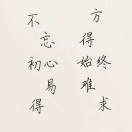 不忘初心易得
方得始终难求